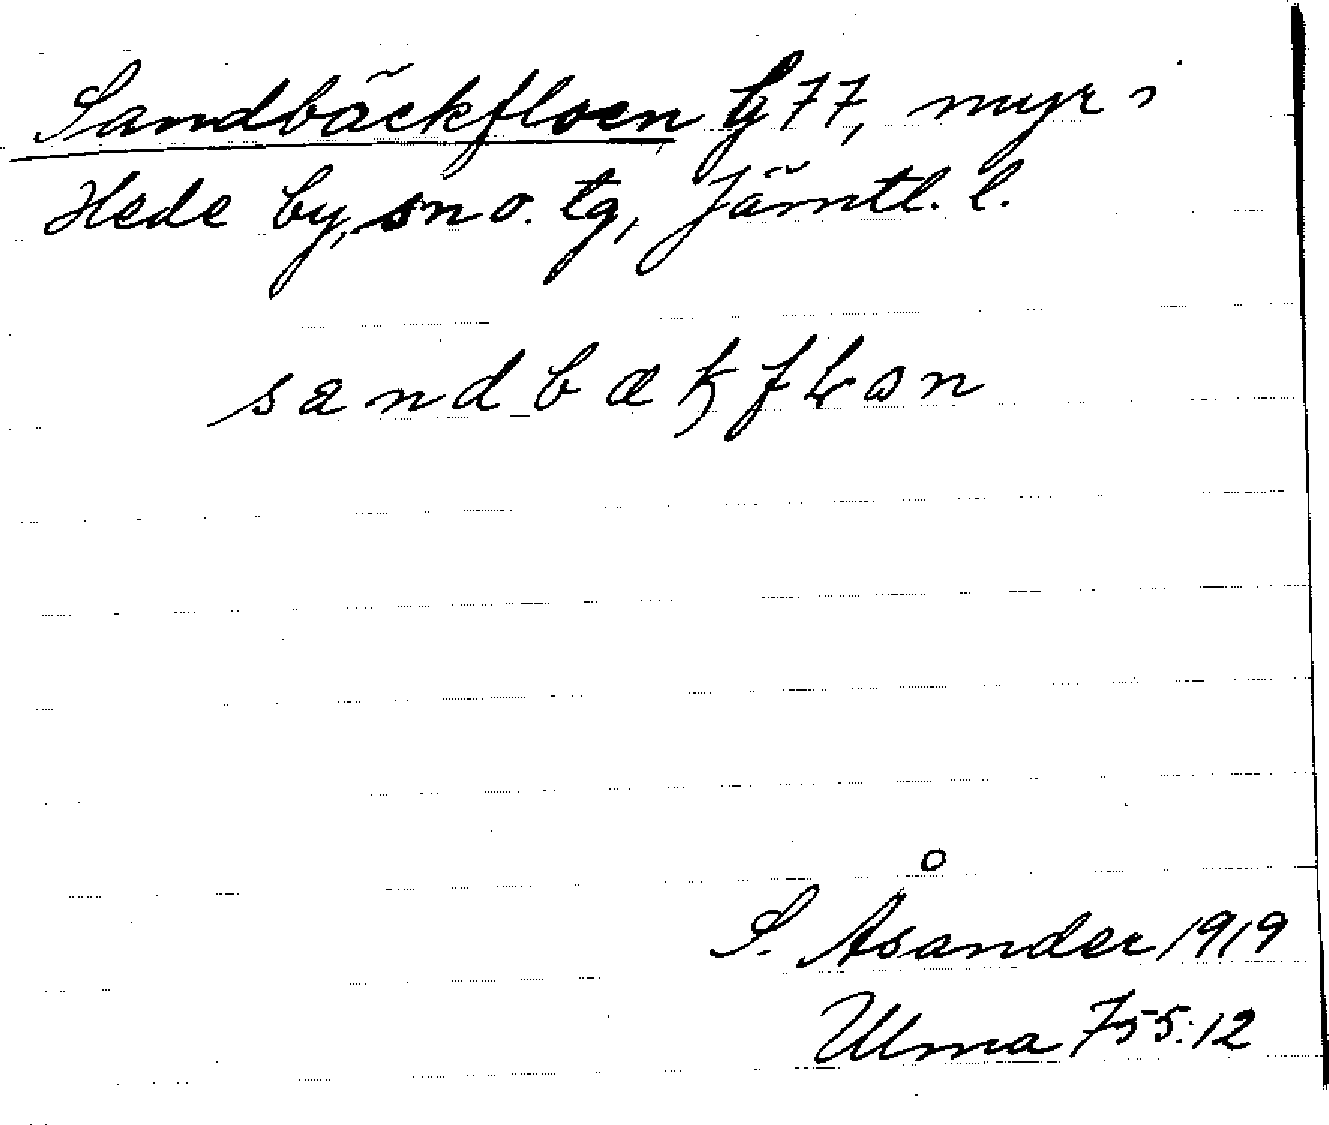 Sandbäckfloen G 77, myr i
Hede by, sn o. tg, Jämtl. l.
sandbækfɫon
S. Åsander 1919
Ulma 755:12